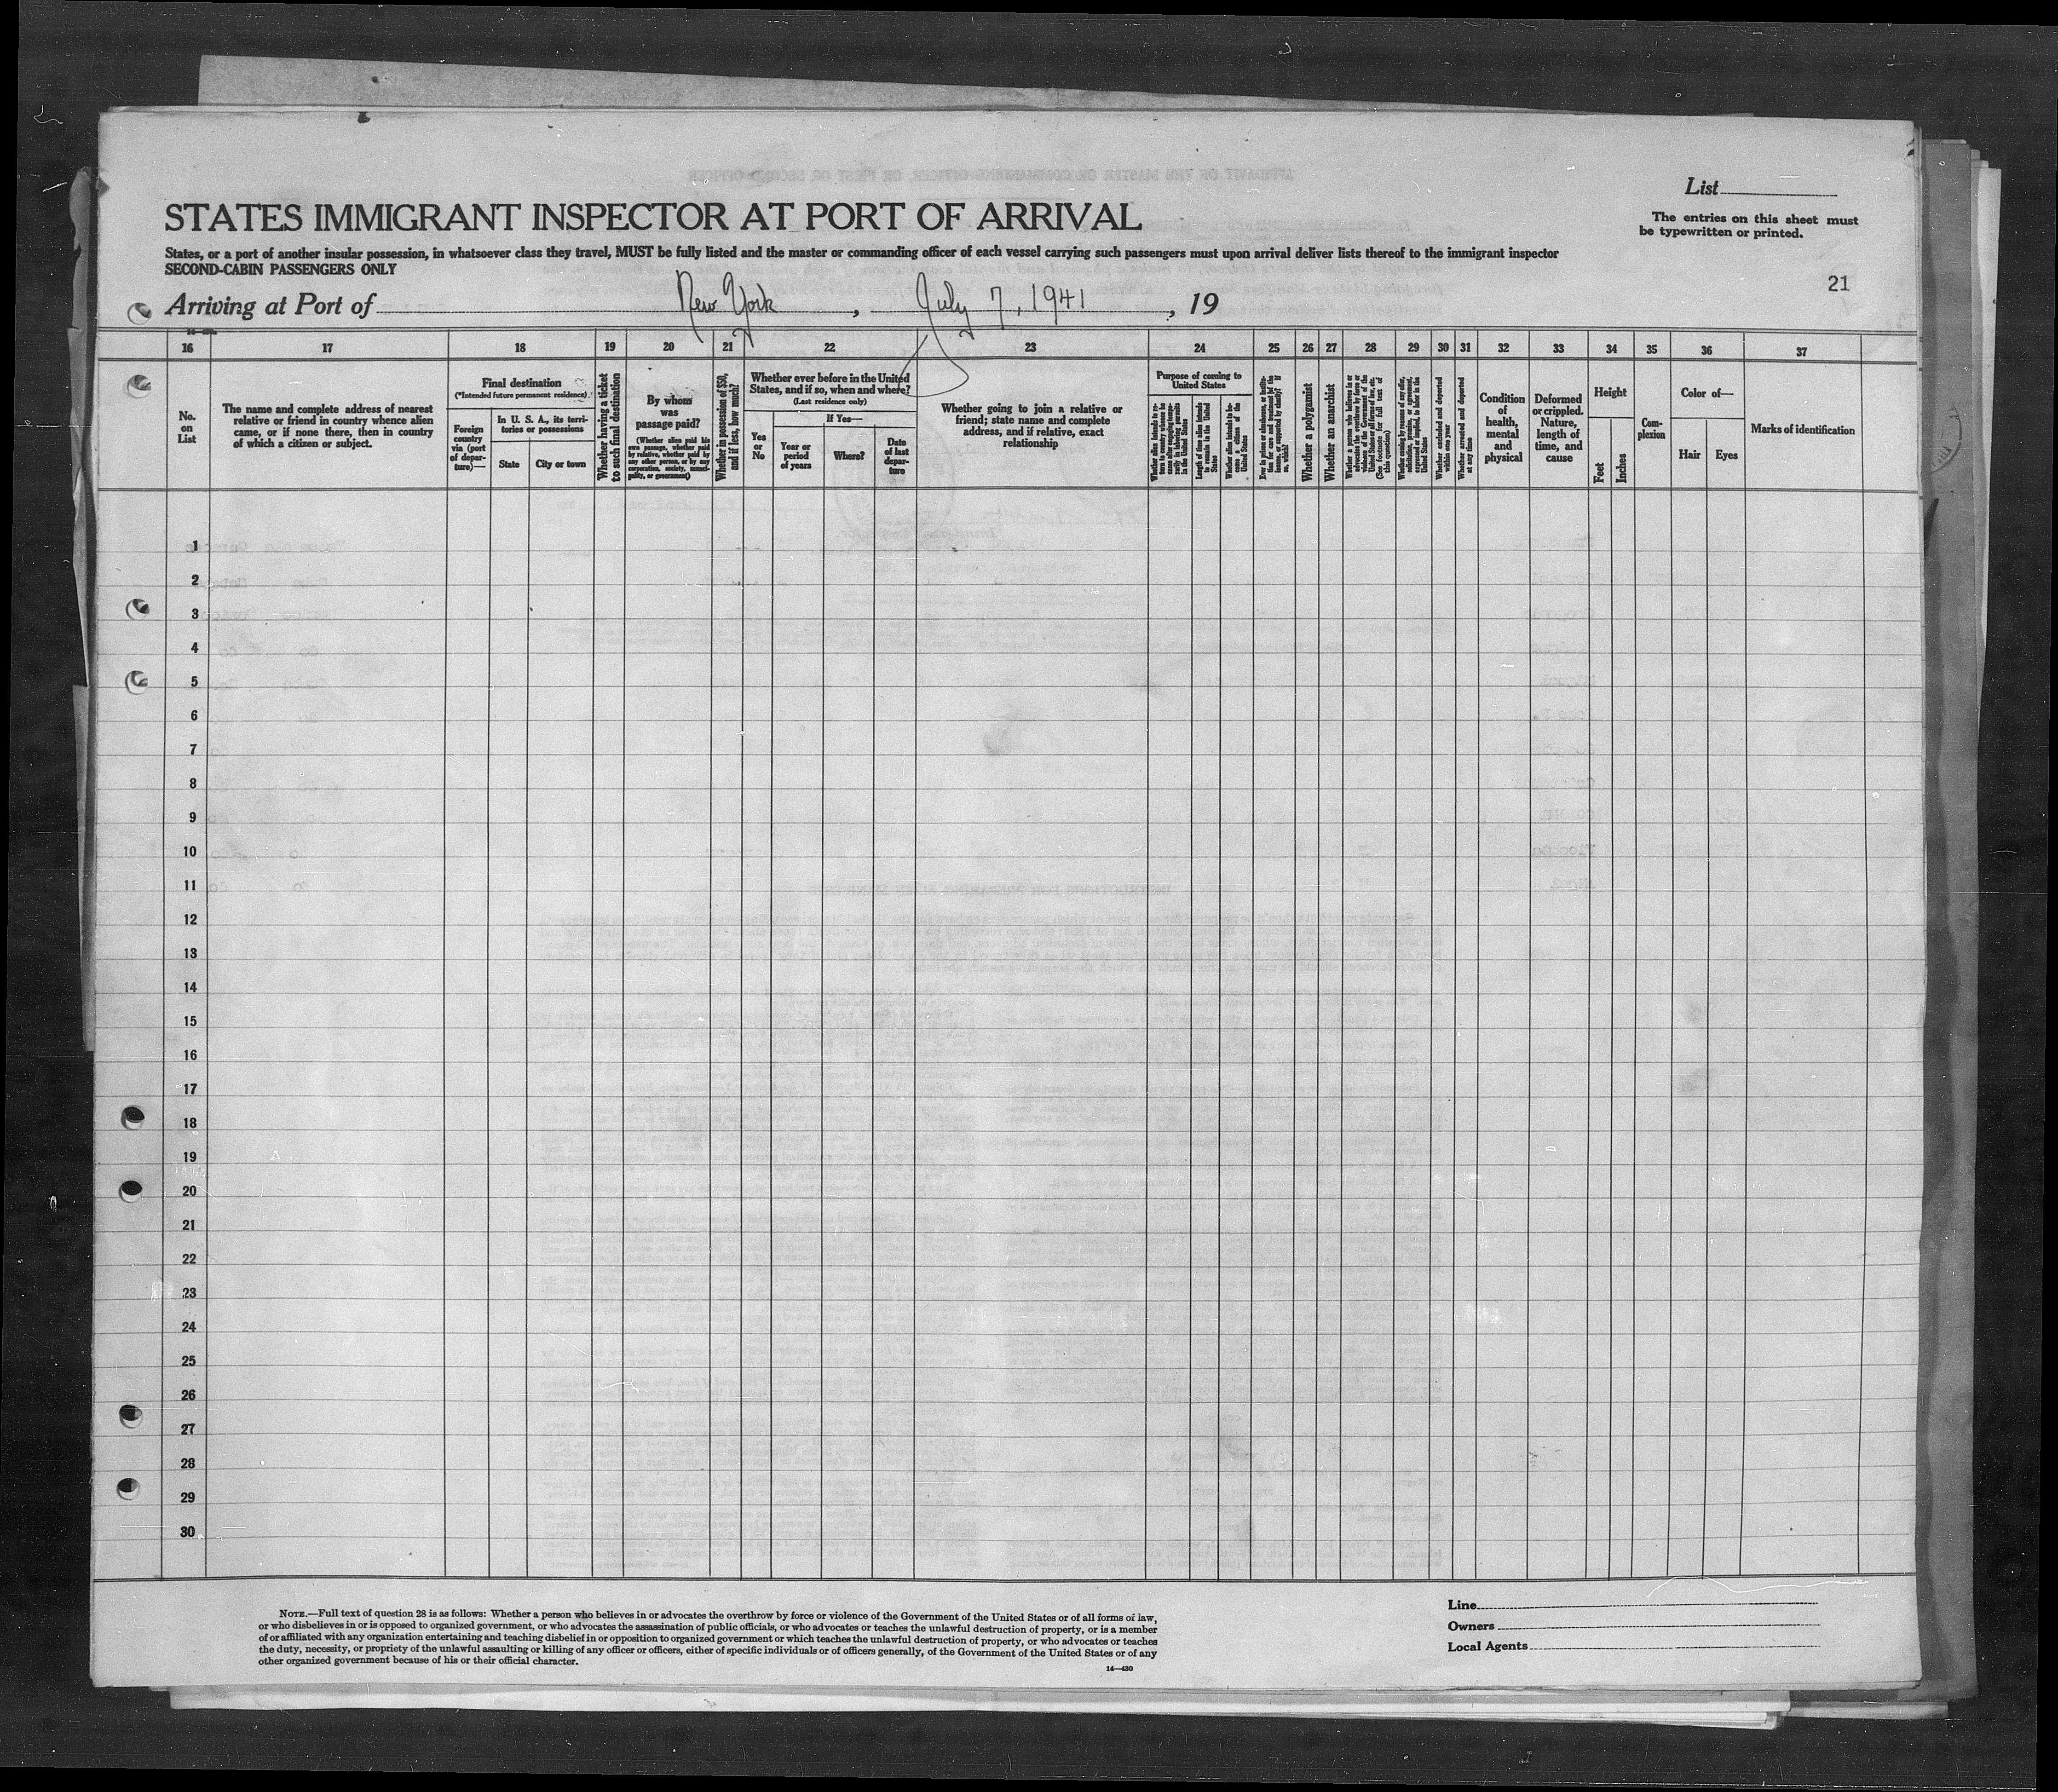 List
STATES IMMIGRANT INSPECTOR AT PORT OF ARRIVAL
The entries on this sheet must
be typewritten or printed.
States, or a port of another insular possession, in whatsoever class they travel, MUST be fully listed and the master or commanding officer of each vessel carrying such passengers must upon arrival deliver lists thereof to the immigrant inspector
SECOND-CABIN PASSENGERS ONLY
21
Arriving at Port of New York, July 7, 1941, 19
16 17 18 19 20 21 22 23 24 25 26 27 28 29 30 31 32 33 34 35 36 37
No.
on
List
The name and complete address of nearest
relative or friend in country whence alien
came, or if none there, then in country
of which a citizen or subject.
Final destination
(*Intended future permanent residence)
Foreign
country
via (port
of depar-
ture)—
In U. S. A., its terri-
tories or possessions
State
City or town
Whether having a ticket
to such final destination
By whom
was
passage paid?
(Whether alien paid his
own passage, whether paid
by relative, whether paid by
any other person, or by any
corporation, society, munici-
pality, or government)
Whether in possession of $50,
and if less, how much?
Whether ever before in the United
States, and if so, when and where?
(Last residence only)
Yes
or
No
If Yes—
Year or
period
of years
Where?
Date
of last
depar-
ture
Whether going to join a relative or
friend; state name and complete
address, and if relative, exact
relationship
Purpose of coming to
United States
Length of time alien intends
to remain in the United
States
Whether alien intends to be-
come a citizen of the
United States
Whether a polygamist
Whether an anarchist
(See footnote for full text of
this question)
Whether excluded and deported
within one year
Whether arrested and deported
at any time
Condition
of
health,
mental
and
physical
Deformed
or crippled.
Nature,
length of
time, and
cause
Height
Feet
Inches
Com-
plexion
Color of—
Hair
Eyes
Marks of identification
1
2
3
4
5
6
7
8
9
10
11
12
13
14
15
16
17
18
19
20
21
22
23
24
25
26
27
28
29
30
NOTE.—Full text of question 28 is as follows: Whether a person who believes in or advocates the overthrow by force or violence of the Government of the United States or of all forms of law,
or who disbelieves in or is opposed to organized government, or who advocates the assassination of public officials, or who advocates or teaches the unlawful destruction of property, or is a member
of or affiliated with any organization entertaining and teaching disbelief in or opposition to organized government or which teaches the unlawful destruction of property, or who advocates or teaches
the duty, necessity, or propriety of the unlawful assaulting or killing of any officer or officers, either of specific individuals or of officers generally, of the Government of the United States or of any
other organized government because of his or their official character.
14—430
Line
Owners
Local Agents